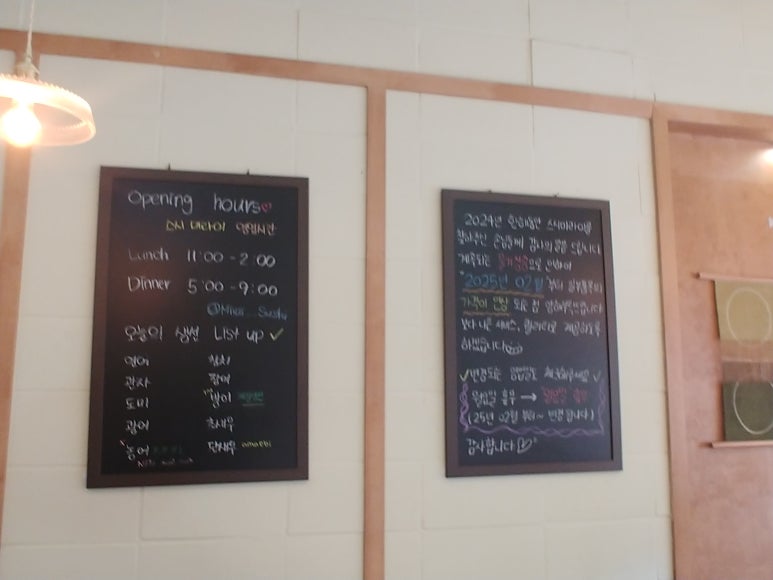 Opening hours
스시 미라이 영업시간
Lunch 11:00 - 2:00
Dinner 5:00 - 9:00
오늘의 생선 List up ✓
연어
참치
관자
도미
광어
농어
단새우 amaebi
2024년 한해동안 스시미라이를
찾아주신 손님들께 감사의 말씀 드립니다.
계속되는 물가상승으로 인하여
"2025년 02월"부터
가격이 인상 되는 점 양해부탁드립니다
보다 나은 서비스, 퀄리티로
하겠습니다
✓변경되는 영업일도 체크해주세요 ✓
월요일 휴무 → 일요일 휴무
(25년 02월 부터~ 변경합니다)
감사합니다♡